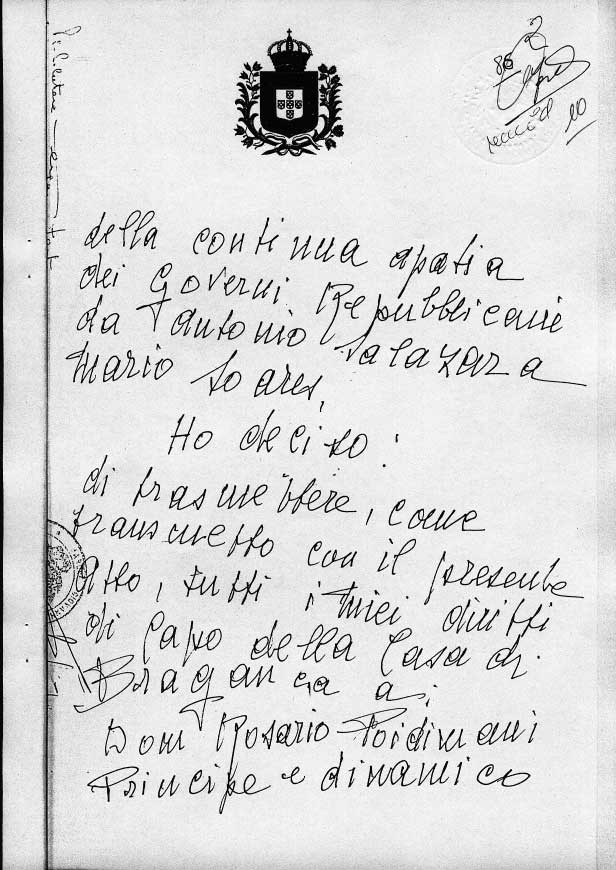 della continua apatia
dei Governi Repubblicani
da Antonio Salazar a
Mario Soares,
Ho deciso:
di trasmettere, come
transmetto con il presente
Atto, tutti i miei diritti
di Capo della Casa di
Bragança a:
Dom Rosario Poidimani
Principe e dinamico